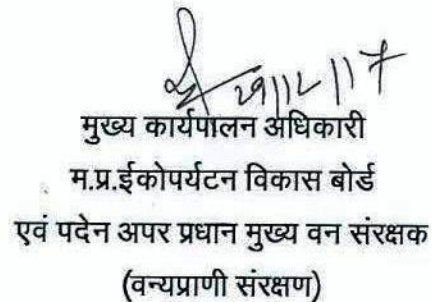 29/12/17
मुख्य कार्यपालन अधिकारी
म.प्र.ईकोपर्यटन विकास बोर्ड
एवं पदेन अपर प्रधान मुख्य वन संरक्षक
(वन्यप्राणी संरक्षण)